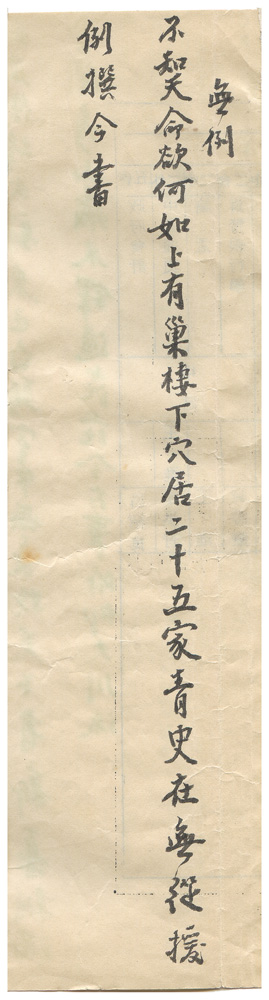 無例
不知天命欲何如上有巢棲下穴居二十五家青史在無從援
例撰今書